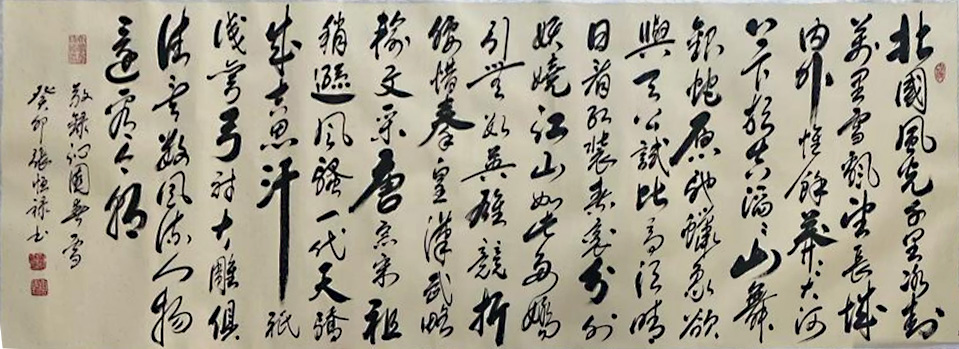 北國風光千里冰封
萬里雪飄望長城
内外惟餘莽々大河
上下頓失滔々山舞
銀蛇原馳蠟象欲
與天公試比高須晴
日看紅裝素裹分外
妖嬈江山如此多嬌
引無數英雄競折
腰惜秦皇漢武略
輸文采唐宗宋祖
稍遜風騷一代天驕
成吉思汗祇
識彎弓射大雕俱
往矣數風流人物
還看今朝
敬録沁園春雪
癸卯張恒禄书